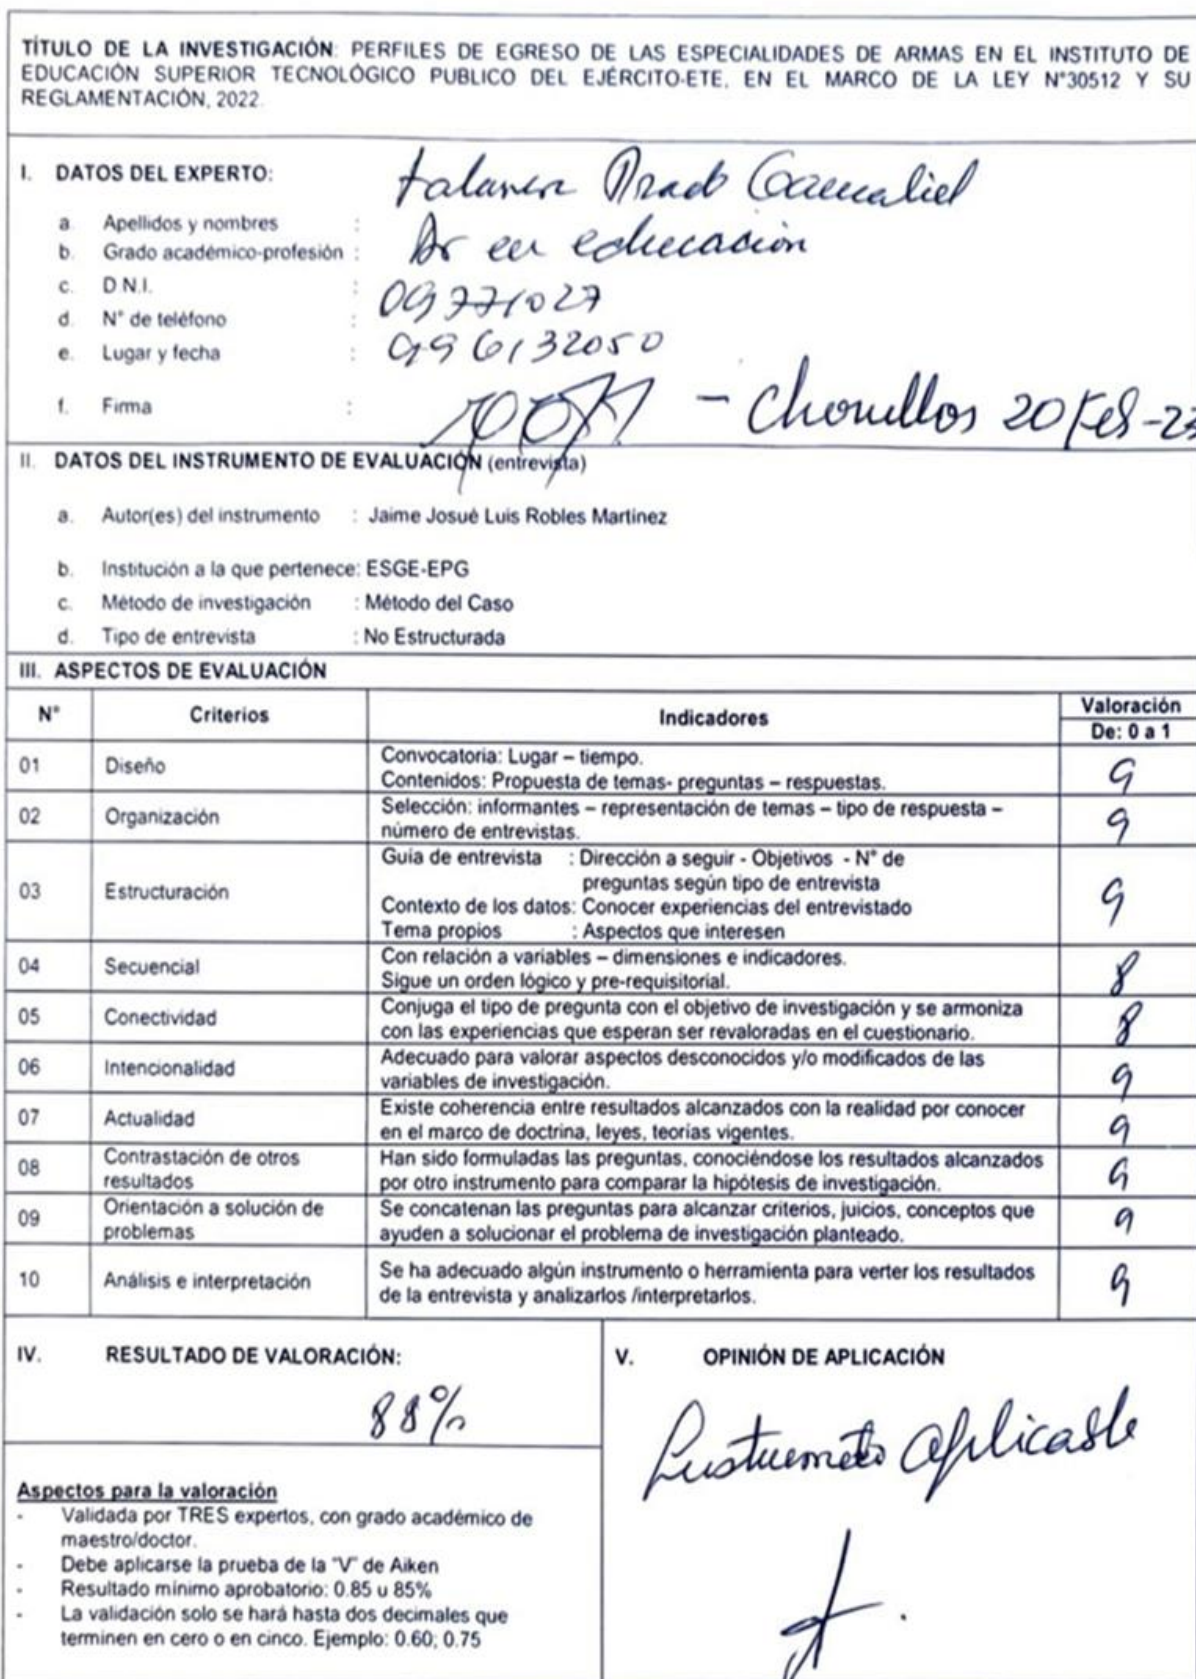 TÍTULO DE LA INVESTIGACIÓN: PERFILES DE EGRESO DE LAS ESPECIALIDADES DE ARMAS EN EL INSTITUTO DE
EDUCACIÓN SUPERIOR TECNOLÓGICO PUBLICO DEL EJÉRCITO-ETE, EN EL MARCO DE LA LEY N°30512 Y SU
REGLAMENTACIÓN, 2022.
I. DATOS DEL EXPERTO:
a. Apellidos y nombres : Prado Gamaliel
b. Grado académico-profesión : Dr en educación
c. D.N.I. : 09771027
d. N° de teléfono : 996132050
e. Lugar y fecha :
f. Firma : - Chorrillos 20 Feb-23
II. DATOS DEL INSTRUMENTO DE EVALUACIÓN (entrevista)
a. Autor(es) del instrumento : Jaime Josué Luis Robles Martínez
b. Institución a la que pertenece: ESGE-EPG
c. Método de investigación : Método del Caso
d. Tipo de entrevista : No Estructurada
III. ASPECTOS DE EVALUACIÓN
N° Criterios Indicadores Valoración
De: 0 a 1
01 Diseño Convocatoria: Lugar – tiempo.
Contenidos: Propuesta de temas- preguntas – respuestas. 9
02 Organización Selección: informantes – representación de temas – tipo de respuesta –
número de entrevistas. 9
03 Estructuración Guia de entrevista : Dirección a seguir - Objetivos - N° de
preguntas según tipo de entrevista
Contexto de los datos: Conocer experiencias del entrevistado
Tema propios : Aspectos que interesen 9
04 Secuencial Con relación a variables – dimensiones e indicadores.
Sigue un orden lógico y pre-requisitorial. 8
05 Conectividad Conjuga el tipo de pregunta con el objetivo de investigación y se armoniza
con las experiencias que esperan ser revaloradas en el cuestionario. 8
06 Intencionalidad Adecuado para valorar aspectos desconocidos y/o modificados de las
variables de investigación. 9
07 Actualidad Existe coherencia entre resultados alcanzados con la realidad por conocer
en el marco de doctrina, leyes, teorías vigentes. 9
08 Contrastación de otros
resultados Han sido formuladas las preguntas, conociéndose los resultados alcanzados
por otro instrumento para comparar la hipótesis de investigación. 9
09 Orientación a solución de
problemas Se concatenan las preguntas para alcanzar criterios, juicios, conceptos que
ayuden a solucionar el problema de investigación planteado. 9
10 Análisis e interpretación Se ha adecuado algún instrumento o herramienta para verter los resultados
de la entrevista y analizarlos /interpretarlos. 9
IV. RESULTADO DE VALORACIÓN:
88%
Aspectos para la valoración
- Validada por TRES expertos, con grado académico de
maestro/doctor.
- Debe aplicarse la prueba de la "V" de Aiken
- Resultado mínimo aprobatorio: 0.85 u 85%
- La validación solo se hará hasta dos decimales que
terminen en cero o en cinco. Ejemplo: 0.60; 0.75
V. OPINIÓN DE APLICACIÓN
Instrumento aplicable